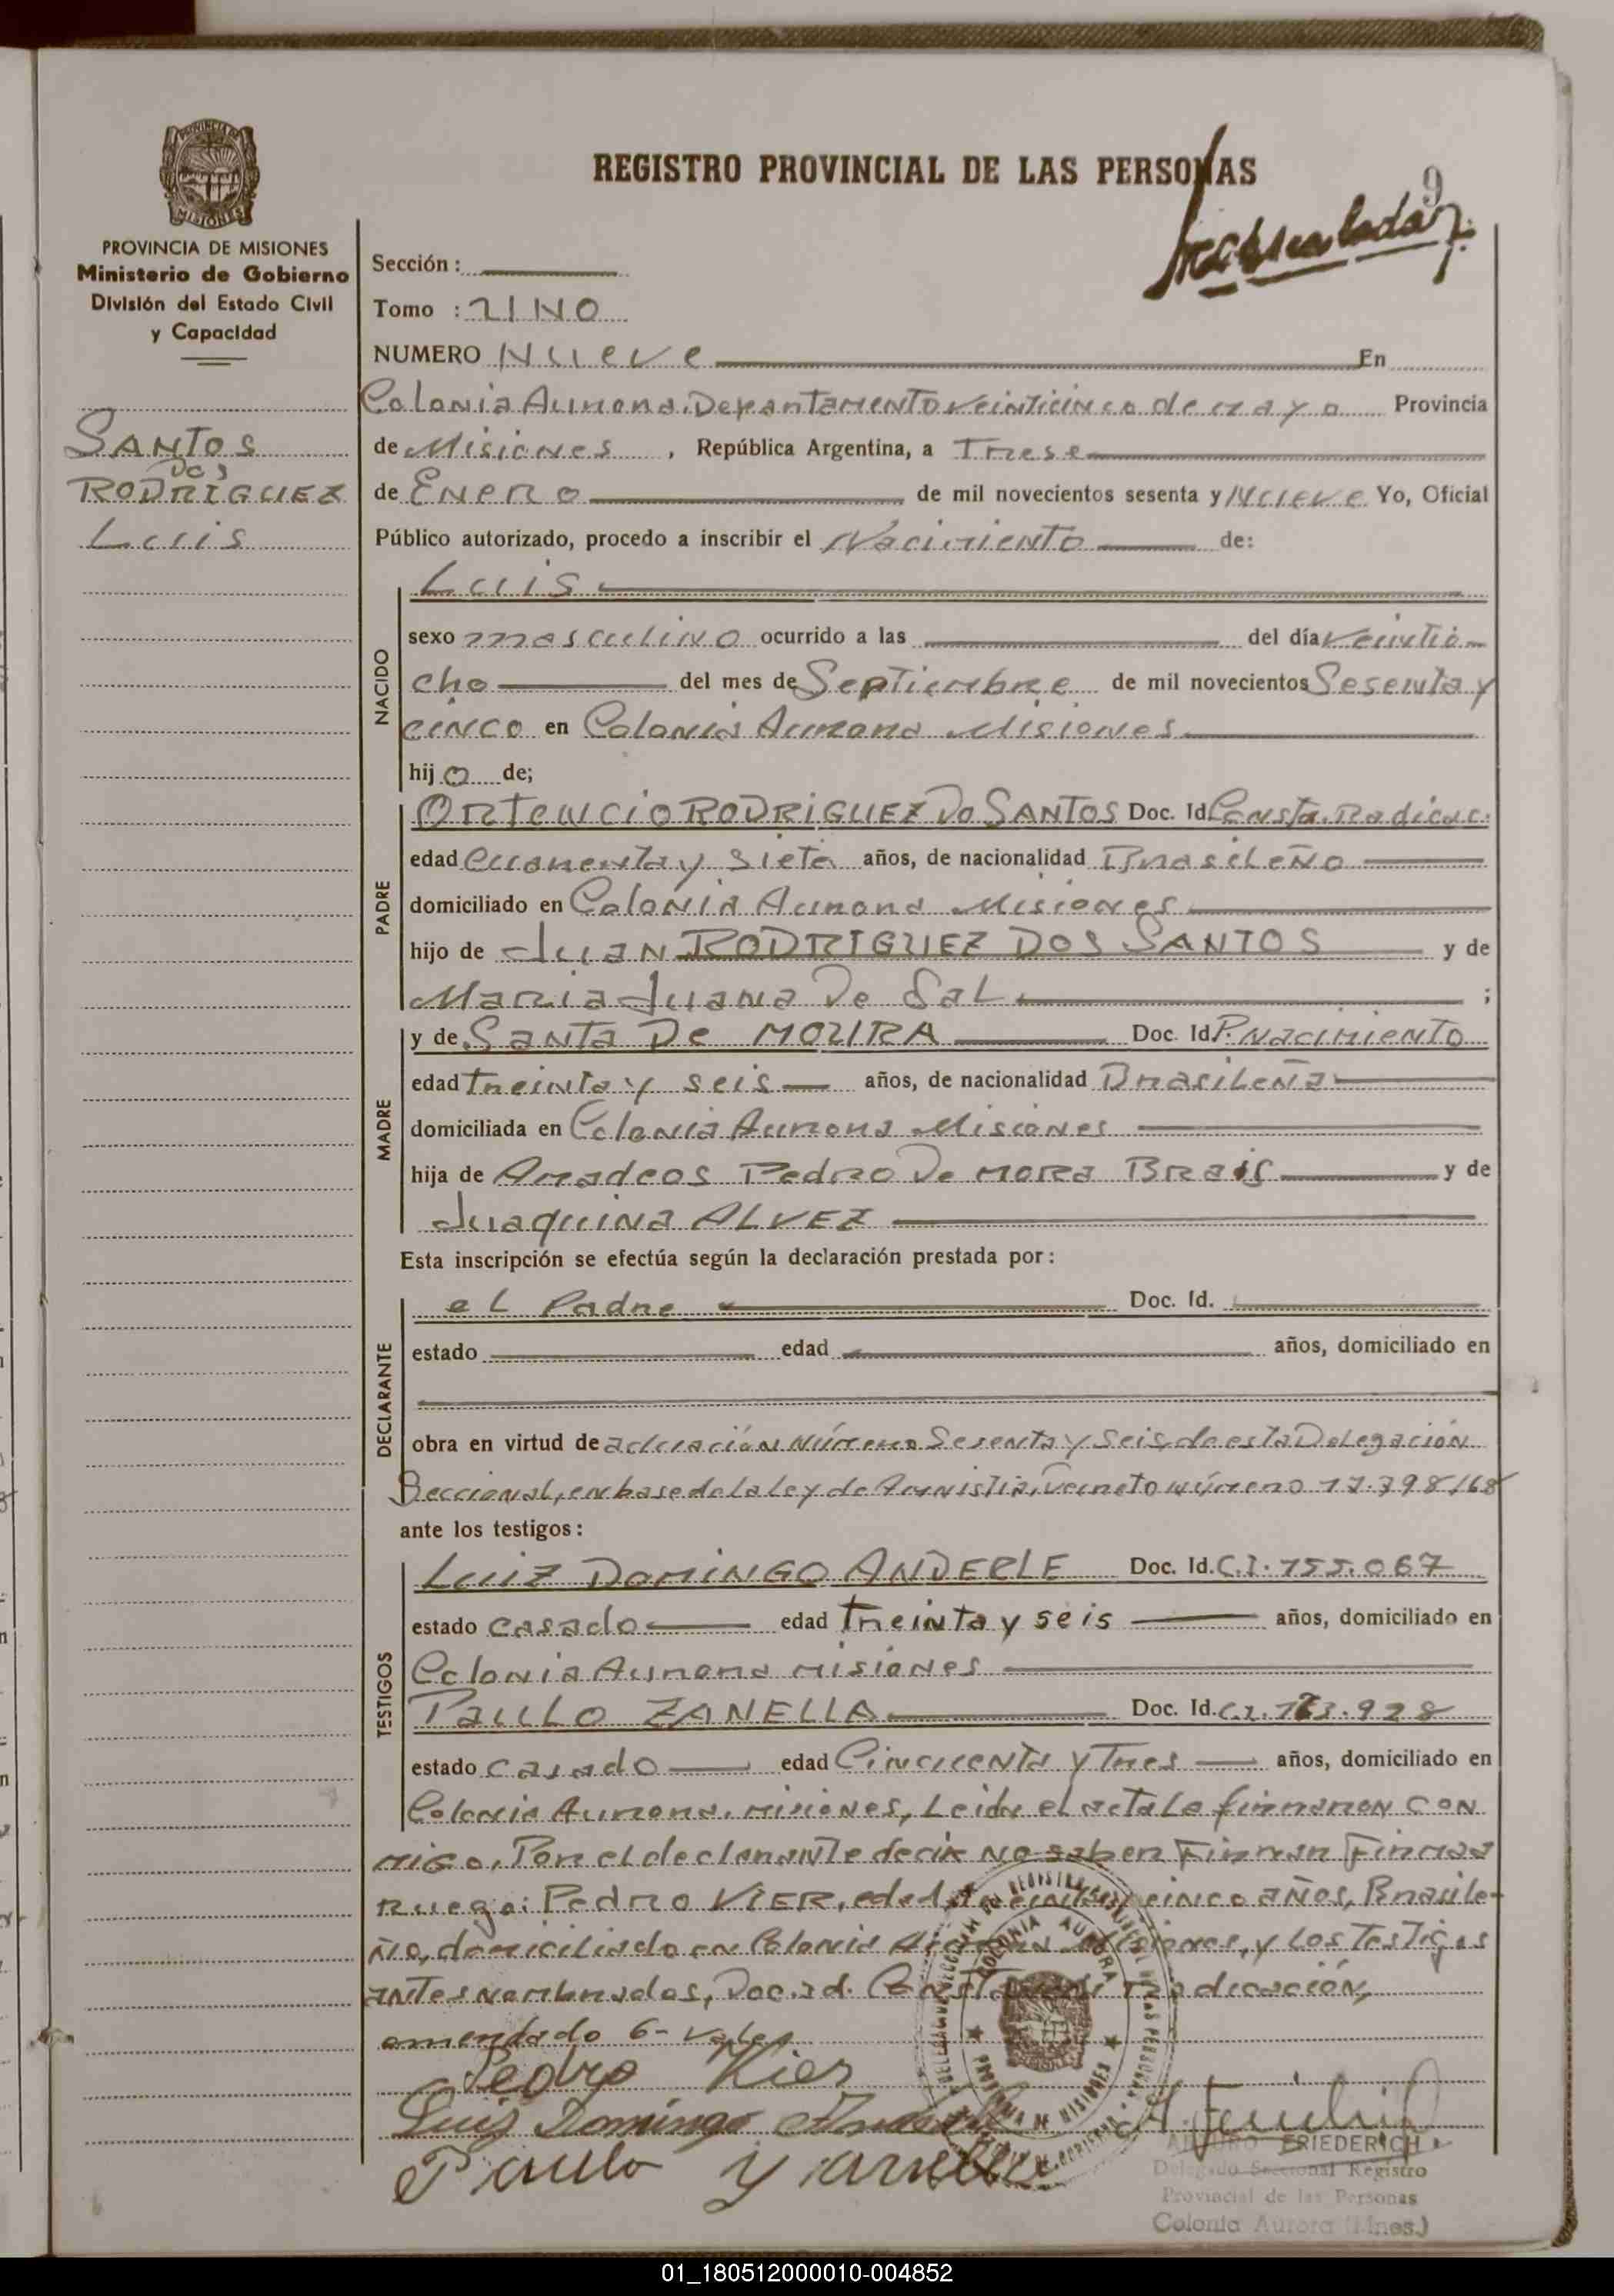 REGISTRO PROVINCIAL DE LAS PERSONAS
9
PROVINCIA DE MISIONES
Ministerio de Gobierno
División del Estado Civil
y Capacidad
SANTOS
DOS
RODRIGUEZ
Luis
Sección :
Tomo : UNO
NUMERO Nueve En
Colonia Aurora, Departamento Veinticinco de mayo Provincia
de Misiones , República Argentina, a Trese
de Enero de mil novecientos sesenta y Nueve Yo, Oficial
Público autorizado, procedo a inscribir el Nacimiento de:
NACIDO
Luis
sexo masculino ocurrido a las del día veintio-
cho del mes de Septiembre de mil novecientos Sesenta y
cinco en Colonia Aurora Misiones
hijo de;
PADRE
Ortencio RODRIGUEZ Do SANTOS Doc. Id. Consta. Radicac.
edad Cuarenta y Siete años, de nacionalidad Brasileño
domiciliado en Colonia Aurora Misiones
hijo de Juan RODRIGUEZ DOS SANTOS y de
Maria Juana De Sal ;
MADRE
y de Santa De MOURA Doc. Id P. Nacimiento
edad Treinta y seis años, de nacionalidad Brasileña
domiciliada en Colonia Aurora Misiones
hija de Amadeos Pedro De mora Brais y de
Juaquina ALVEZ
Esta inscripción se efectúa según la declaración prestada por:
DECLARANTE
el Padre Doc. Id.
estado edad años, domiciliado en
obra en virtud de actuación Número Sesenta y Seis de esta Delegación
Seccional, en base de la ley de Amnistia, Decreto número 17.798/68
ante los testigos:
TESTIGOS
Luiz Domingo ANDERLE Doc. Id. C.I. 155.067
estado casado edad treinta y seis años, domiciliado en
Colonia Aurora misiones
Paulo ZANELLA Doc. Id. C.I. 163.928
estado casado edad Cincuenta y Tres años, domiciliado en
Colonia Aurora, misiones, Leida el acta la firmaron con
migo, Por el declarante decir no saber Firmar Firma a
ruego: Pedro VIER, edad treinta y cinco años, Brasile-
ño, domiciliado en Colonia Aurora Misiones, y los Testigos
antes nombrados, Doc. id. Constancia radicación,
emendado 6- vale
Pedro Vier
Luiz Domingo Anderle
Paulo Zanella
COLONIA AURORA
PROVINCIA DE MISIONES
ARTURO FRIEDERICH
Delegado Seccional Registro
Provincial de las Personas
Colonia Aurora (Mnes.)
01_180512000010-004852